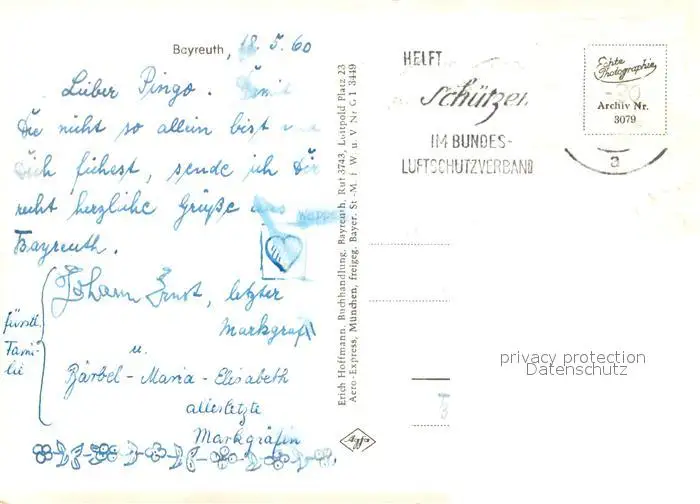 Bayreuth, 18.5.60
Lieber Pingo. Damit
Du nicht so allein bist
Dich fühest, sende ich Dir
recht herzliche Grüße aus
Bayreuth.
Wappen
Johann Ernst, letzter
Markgraf
u.
Bärbel-Maria-Elisabeth
allerletzte
Markgräfin
fürstl.
Fami-
lie
Erich Hoffmann, Buchhandlung, Bayreuth, Ruf 3743, Luitpold Platz 23
Aero-Express, München, freigeg. Bayer. St.-M. f. W. u. V Nr G 1 3449
Agfa
HELFT
Schützen
IM BUNDES-
LUFTSCHUTZVERBAND
Echte
Photographie
Archiv Nr.
3079
a
privacy protection
Datenschutz